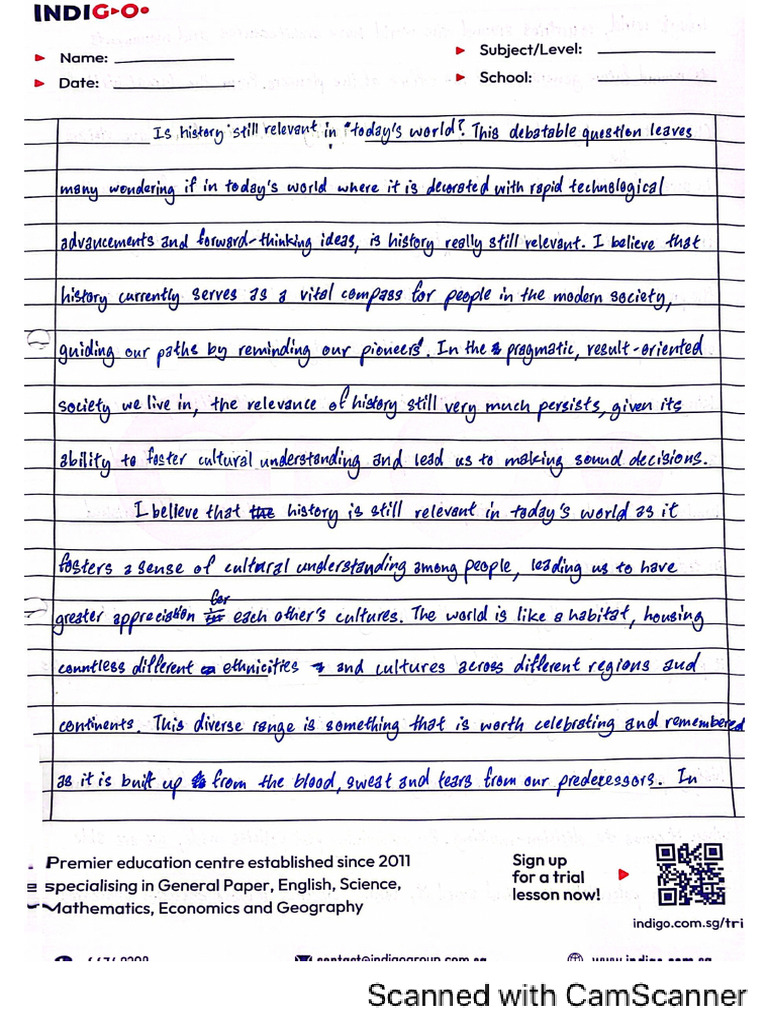 INDIGO
Name:
Subject/Level:
Date:
School:
Is history still relevant in "today's world? This debatable question leaves
many wondering if in today's world where it is decorated with rapid technological
advancements and forward-thinking ideas, is history really still relevant. I believe that
history currently serves as a vital compass for people in the modern society,
guiding our paths by reminding our pioneers'. In the pragmatic, result-oriented
society we live in, the relevance of history still very much persists, given its
ability to foster cultural understanding and lead us to making sound decisions.
I believe that the history is still relevant in today's world as it
fosters a sense of cultural understanding among people, leading us to have
greater appreciation for each other's cultures. The world is like a habitat, housing
countless different ethnicities and cultures across different regions and
continents. This diverse range is something that is worth celebrating and remembered
as it is built up from the blood, sweat and tears from our predecessors. In
Premier education centre established since 2011
specialising in General Paper, English, Science,
Mathematics, Economics and Geography
Sign up
for a trial
lesson now!
indigo.com.sg/tri
Scanned with CamScanner